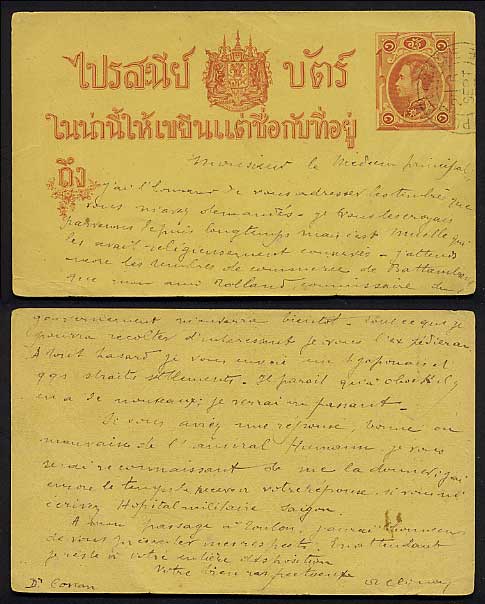 ไปรสนีย์ บัตร์
ในน่านี้ให้เขียนแต่ชื่อกับที่อยู่
ถึง
Monsieur le Médecin principal,
j'ai l'honneur de vous adresser les timbres que
vous m'avez demandés - je vous les croyais
parvenus depuis longtemps mais c'est Muelle qui
les avait religieusement conservés - j'attends
encore les timbres de commerce de Battambang
que mon ami Rolland, commissaire du
gouvernement m'enverra bientôt - tout ce que je
pourra récolter d'intéressant je vous l'expédierai
A tout hasard je vous envoie un japonais et
qqs straits settlements - Il paraît qu'à il y
en a de nouveaux; je verrai en passant -
Si vous aviez une réponse, bonne ou
mauvaise de l'amiral Humann je vous
serai reconnaissant de me la donner; j'ai
encore le temps de recevoir votre réponse si vous m'
écrivez Hôpital militaire Saigon.
A mon passage à Toulon, j'aurai l'honneur
de vous présenter mes respects. En attendant
je reste à votre entière disposition
Votre bien respectueux
Dr